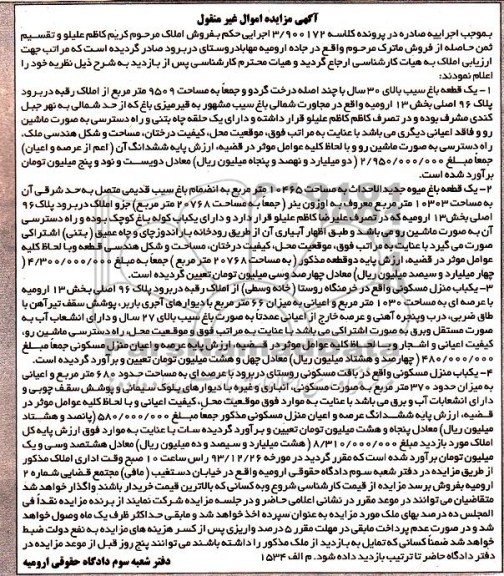 آگهی مزایده اموال غیر منقول
بموجب اجراییه صادره در پرونده کلاسه ۳/۹۰۰۱۷۲ اجرایی حکم بفروش املاک مرحوم کریم کاظم علیلو و تقسیم
ثمن حاصله از فروش ماترک مرحوم واقع در جاده ارومیه مهاباد روستای دربرود صادر گردیده است که مراتب جهت
ارزیابی املاک به هیات کارشناسی ارجاع گردید و هیات محترم کارشناسی پس از بازدید به شرح ذیل نظریه خود را
اعلام نمودند:
۱- یک قطعه باغ سیب بالای ۳۰ سال با چند اصله درخت گردو و جمعاً به مساحت ۹۵۰۹ متر مربع از املاک رقبه دربرود
پلاک ۹۶ اصلی بخش ۱۳ ارومیه واقع در مجاورت شمالی باغ سیب مشهور به قیرمیزی باغ که از حد شمالی به نهر جبل
کندی مشرف بوده و در تصرف کاظم کاظم علیلو قرار داشته و دارای یک حلقه چاه بتنی و راه دسترسی به صورت ماشین
رو و فاقد اعیانی دیگری می باشد با عنایت به مراتب فوق، موقعیت محل، کیفیت درختان، مساحت و شکل هندسی ملک،
راه دسترسی به صورت ماشین رو و با لحاظ کلیه عوامل موثر در قضیه، ارزش پایه ششدانگ آن (اعم از عرصه و اعیان)
جمعاً مبلغ ۲/۹۵۰/۰۰۰/۰۰۰ (دو میلیارد و نهصد و پنجاه میلیون ریال) معادل دویست و نود و پنج میلیون تومان
برآورد شده است.
۲- یک قطعه باغ میوه جدید الاحداث به مساحت ۱۰۴۶۵ متر مربع به انضمام باغ سیب قدیمی متصل به حد شرقی آن
به مساحت ۱۰۳۰۳ متر مربع معروف به اوزون یئر (جمعاً به مساحت ۲۰۷۶۸ متر مربع) جزو املاک دربرود پلاک ۹۶
اصلی بخش ۱۳ ارومیه که در تصرف علیرضا کاظم علیلو قرار دارد و دارای یکباب کوله باغ کوچک بوده و راه دسترسی
آن به صورت ماشین رو می باشد و طبق اظهار آبیاری آن از طریق رودخانه باراندوزچای و چاه عمیق (بتنی) اشتراکی
صورت می گیرد با عنایت به مراتب فوق، موقعیت محل، کیفیت درختان، مساحت و شکل هندسی قطعه و با لحاظ کلیه
عوامل موثر در قضیه، ارزش پایه دو قطعه مذکور (به مساحت ۲۰۷۶۸ متر مربع) جمعاً به مبلغ ۴/۳۰۰/۰۰۰/۰۰۰ (
چهار میلیارد و سیصد میلیون ریال) معادل چهارصد و سی میلیون تومان تعیین گردیده است.
۳- یکباب منزل مسکونی واقع در خرمنگاه روستا (خانه وسطی) از املاک رقبه دربرود پلاک ۹۶ اصلی بخش ۱۳ ارومیه
با عرصه ای به مساحت ۱۰۳۰ متر مربع و اعیانی به میزان ۶۶ متر مربع با دیوارهای آجری باربر، پوشش سقف تیرآهن با
طاق ضربی، درب و پنجره آهنی و عرصه خارج از اعیانی عمدتاً به صورت باغ سیب بالای ۲۷ سال و دارای انشعاب آب به
صورت مستقل و برق به صورت اشتراکی می باشد با عنایت به مراتب فوق و موقعیت محل، راه دسترسی ماشین رو،
کیفیت اعیانی و اشجار و با لحاظ کلیه عوامل موثر در قضیه، ارزش پایه عرصه و اعیان منزل مسکونی جمعاً مبلغ
۴۸۰/۰۰۰/۰۰۰ (چهارصد و هشتاد میلیون ریال) معادل چهل و هشت میلیون تومان تعیین و برآورد گردیده است.
۴- یکباب منزل مسکونی واقع در بافت مسکونی روستای دربرود با عرصه ای به مساحت حدود ۶۸۰ متر مربع و اعیانی
به میزان حدود ۳۷۰ متر مربع به صورت مسکونی، انباری و غیره با دیوارهای بلوک سیمانی و پوشش سقف چوبی و
دارای انشعابات آب و برق می باشد با عنایت به موارد فوق موقعیت محل، کیفیت اعیانی و با لحاظ کلیه عوامل موثر در
قضیه، ارزش پایه ششدانگ عرصه و اعیان منزل مسکونی مذکور جمعاً مبلغ ۵۸۰/۰۰۰/۰۰۰ (پانصد و هشتاد
میلیون ریال) معادل پنجاه و هشت میلیون تومان تعیین و برآورد گردیده است با عنایت به موارد فوق ارزش پایه کل
املاک مورد بازدید مبلغ ۸/۳۱۰/۰۰۰/۰۰۰ (هشت میلیارد و سیصد و ده میلیون ریال) معادل هشتصد و سی و یک
میلیون تومان برآورد شده است که مقرر گردید در مورخه ۹۳/۱۲/۲۶ راس ساعت ۱۰ صبح وقت اداری املاک مذکور
از طریق مزایده در دفتر شعبه سوم دادگاه حقوقی ارومیه واقع در خیابان دستغیب (مافی) مجتمع قضایی شماره ۲
ارومیه بفروش برسد مزایده از قیمت کارشناسی شروع و به کسانی که بالاترین قیمت خریدار باشند واگذار خواهد شد
متقاضیان می توانند در موعد مقرر در نشانی اعلامی حاضر و در جلسه مزایده شرکت نمایند از برنده مزایده نقداً فی
المجلس ده درصد بهای ملک مورد مزایده به عنوان سپرده اخذ خواهد شد و مابقی حداکثر ظرف یک ماه وصول خواهد
شد و در صورت عدم پرداخت مابقی در مهلت مقرر ۵ درصد واریزی پس از کسر هزینه های مزایده به نفع دولت ضبط
خواهد شد ضمناً کسانی که تمایل به بازدید از ملک مذکور را داشته باشند می توانند پنج روز قبل از موعد مزایده در
دفتر دادگاه حاضر تا ترتیب بازدید داده شود. م الف ۱۵۳۴
دفتر شعبه سوم دادگاه حقوقی ارومیه